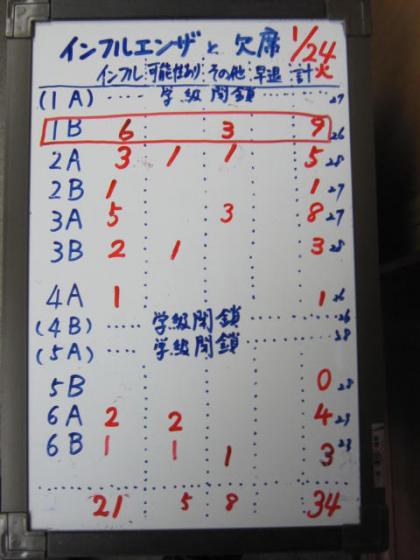 インフルエンザと欠席 1/24
インフル 可能性あり その他 早退 計 火
(1A) 学級閉鎖 27
1B 6 3 9 26
2A 3 1 1 5 28
2B 1 1 27
3A 5 3 8 27
3B 2 1 3 28
4A 1 1 26
(4B) 学級閉鎖 26
(5A) 学級閉鎖 28
5B 0 28
6A 2 2 4 23
6B 1 1 1 3 23
21 5 8 34